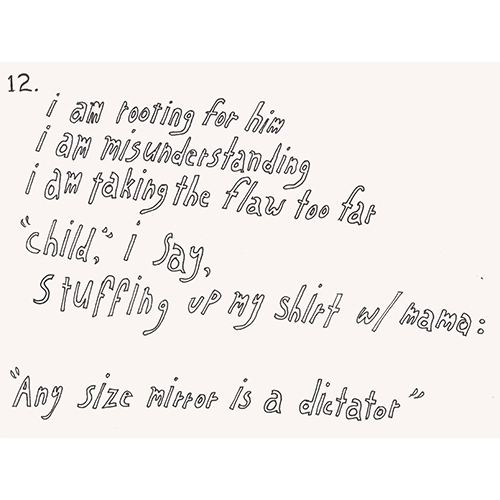 12.
i am rooting for him
i am misunderstanding
i am taking the flaw too far
"child," i say,
stuffing up my shirt w/ mama:
"Any size mirror is a dictator"